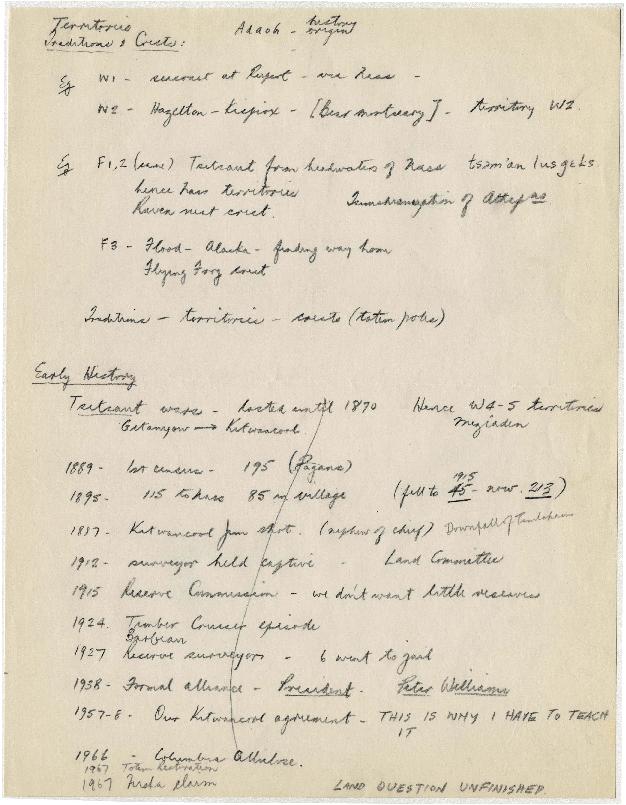 Territories
Traditions & Crests: Adaoh - history origin
Eg W1 - seacoast at Rupert - via Nass -
W2 - Hazelton - Kispiox - [Bear mortuary] - territory W2.
Eg F1,2 (cane) Tsetsaut from headwaters of Nass
hence Nass territories Tsimshianization of
Raven nest crest.
F3 - Flood - Alaska - finding way home
Flying Frog crest
Traditions - territories - crests (totem poles)
Early History
Tsetsaut wars - lasted until 1870 Hence W4-5 territories
Gitanyow → Kitwancool Meziaden
1889 - 1st census - 195 (Pagans)
1895 - 115 to Nass 85 in village (fell to 45 1915 - now 213)
1887 - Kitwancool Jim shot. (nephew of chief) Downfall of Temlaham
1912 - surveyor held captive - Land Committee
1915 Reserve Commission - we don't want little reserves
1924. Timber Cruiser episode
Barbeau
1927 Reserve surveyors - 6 went to jail
1938 - Formal alliance - President. Peter Williams
1957-8 - Our Kitwancool agreement - THIS IS WHY I HAVE TO TEACH
IT
1966 - Columbia Cellulose.
1967 Totem Restoration
1967 claim LAND QUESTION UNFINISHED.